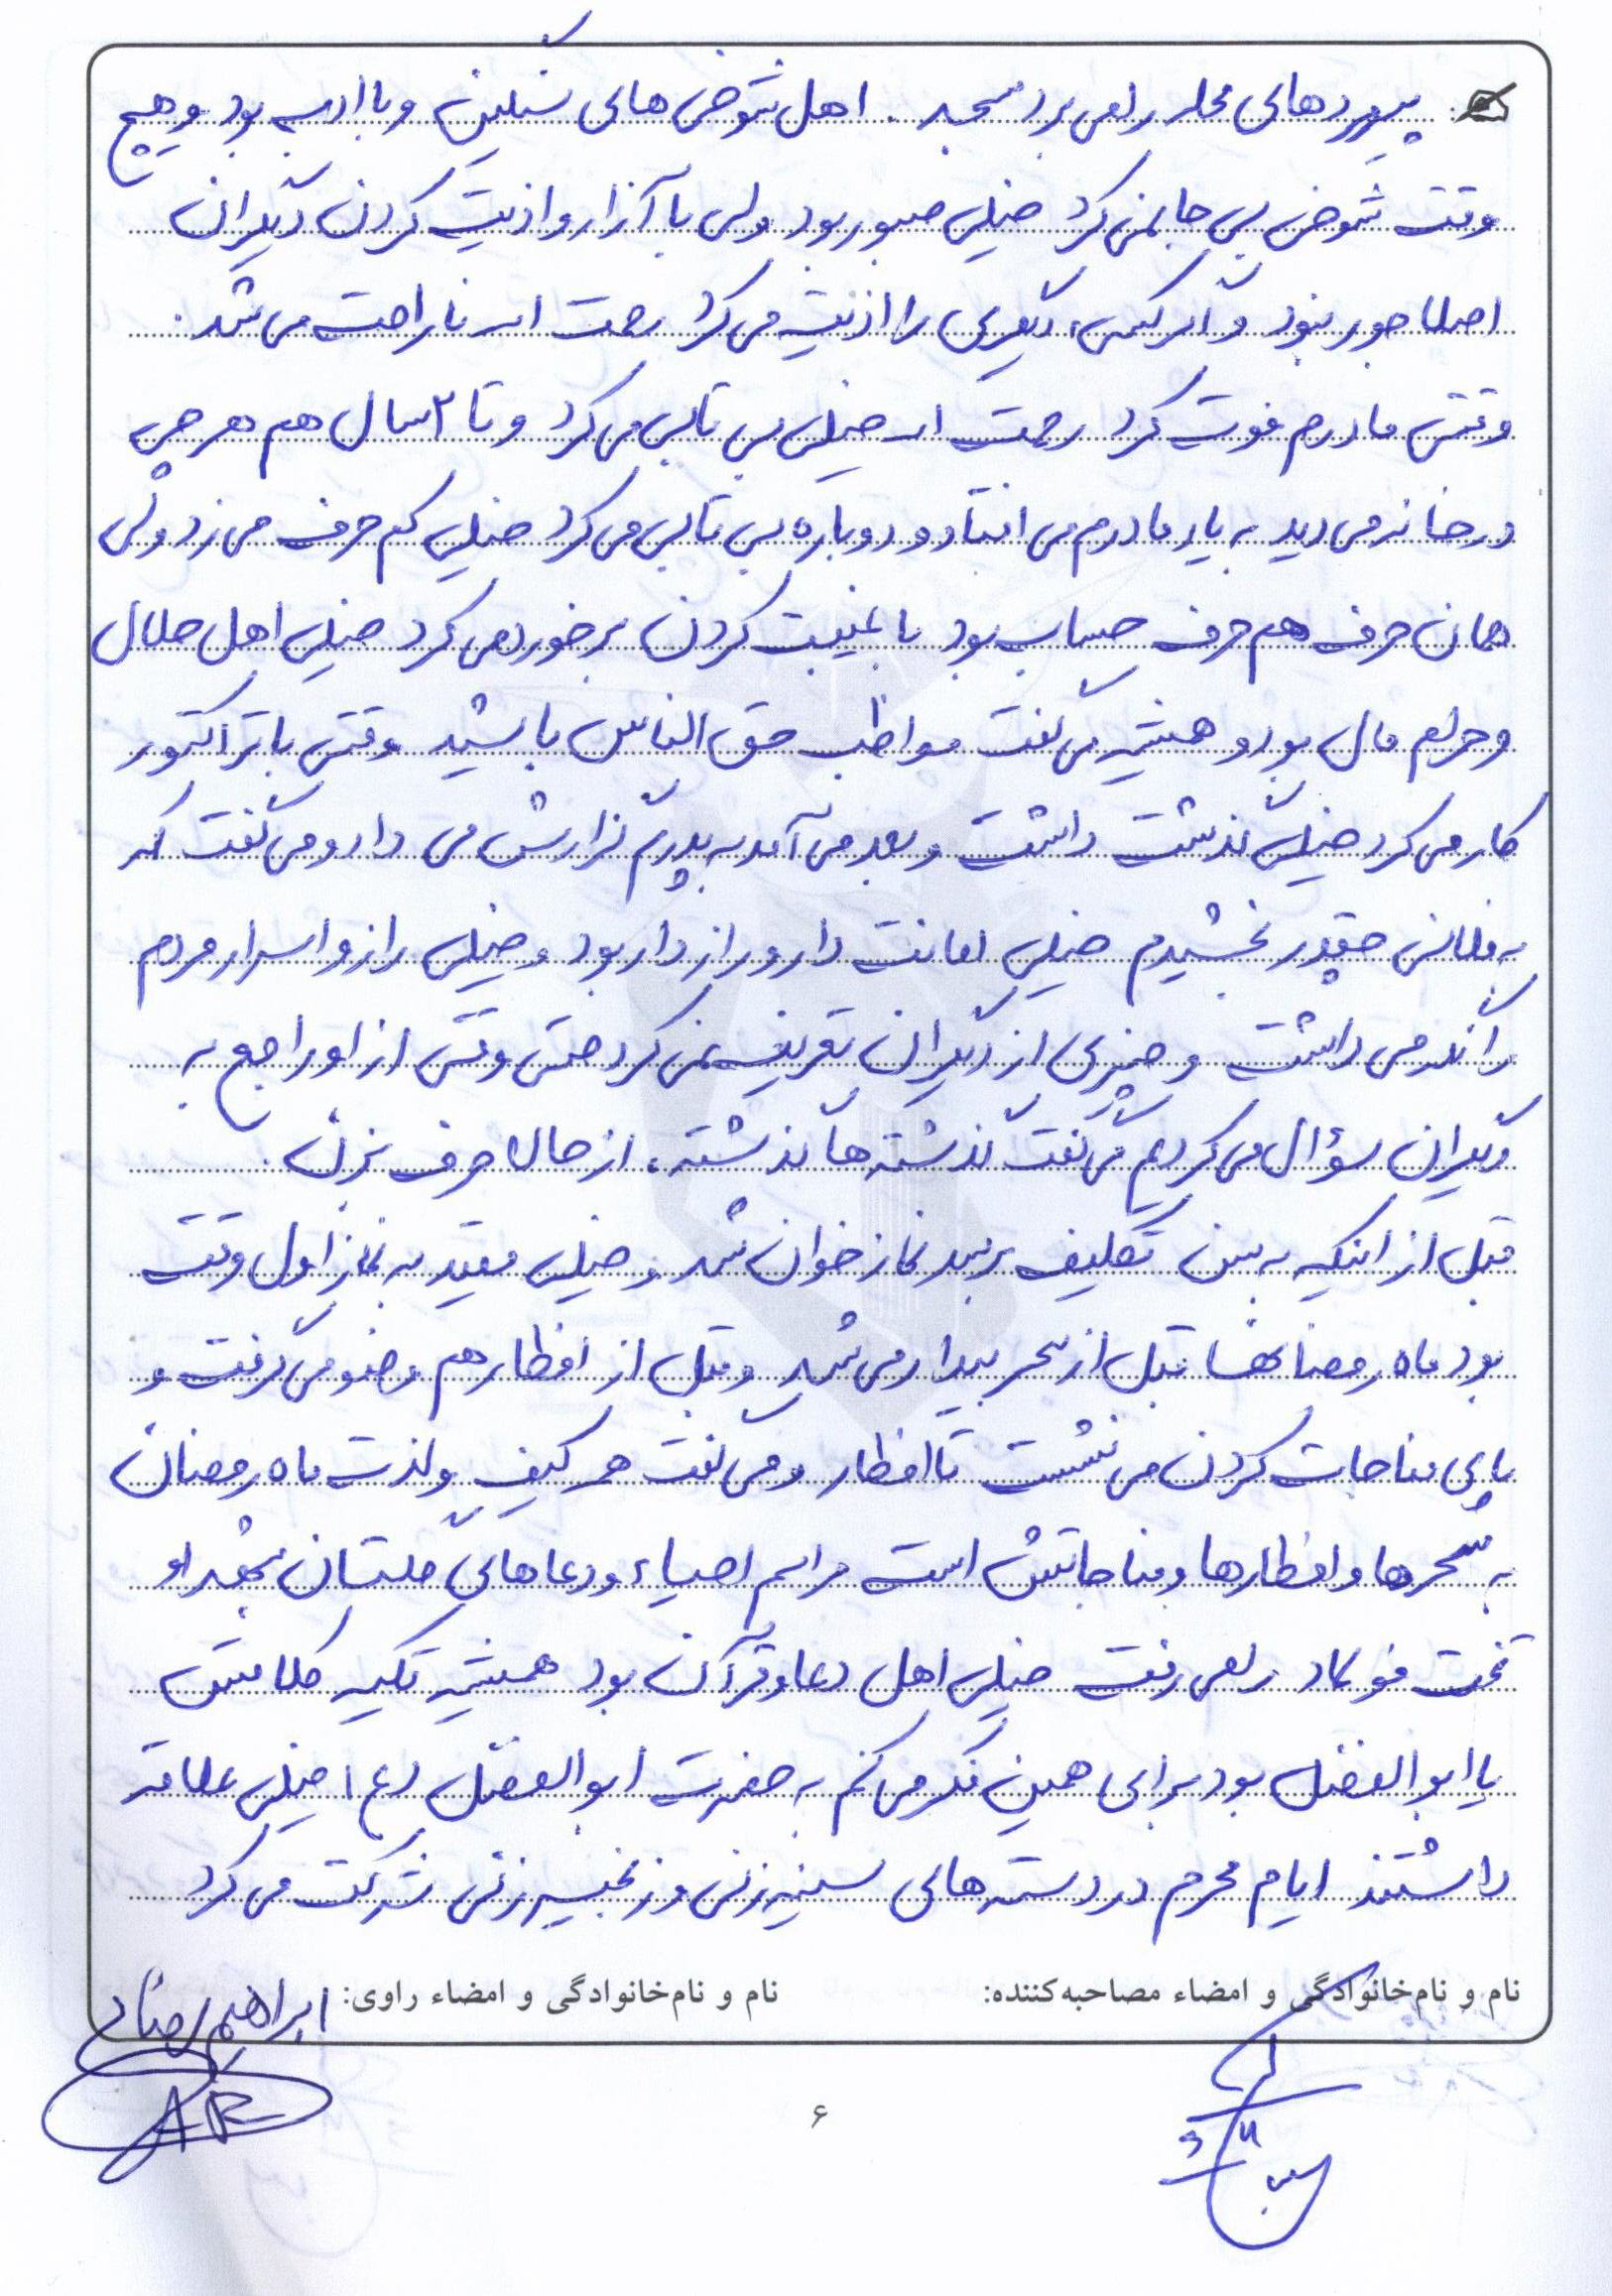 پیرمردهای محله را می برد مسجد. اهل شوخی های سنگین و با ادب بود و هیچ
وقت شوخی بی جا نمی کرد خیلی صبور بود ولی با آزار و اذیت کردن دیگران
اصلا جور نبود و اگر کسی، دیگری را اذیت می کرد رحمت اله ناراحت می شد.
وقتی مادرم فوت کرد رحمت اله خیلی بی تابی می کرد و تا ۲ سال هم هر چی
در خانه می دید به یاد مادرم می افتاد و دوباره بی تابی می کرد خیلی کم حرف می زد ولی
همان حرف هم حرف حساب بود با غیبت کردن برخورد می کرد خیلی اهل حلال
و حرام مال بود و همیشه می گفت مواظب حق الناس باشید وقتی با تراکتور
کار می کرد خیلی گذشت داشت و بعد می آمد به پدرم گزارش می داد و می گفت که
به فلانی چقدر بخشیدم خیلی امانت دار و رازدار بود و خیلی راز و اسرار مردم
را نگه می داشت و چیزی از دیگران تعریف نمی کرد حتی وقتی از او راجع به
دیگران سؤال می کردیم می گفت گذشته ها گذشته، از حالا حرف بزن.
قبل از اینکه به سن تکلیف برسد نماز خوان شد و خیلی مقید به نماز اول وقت
بود ماه رمضانها قبل از سحر بیدار می شد و قبل از افطار هم وضو می گرفت و
پای مناجات کردن می نشست تا افطار و می گفت هر کیف و لذت ماه رمضان
به سحرها و افطارها و مناجاتش است مراسم احیاء و دعاهای گلستان شهدا و
تخت فولاد را می رفت خیلی اهل دعا و قرآن بود همیشه تکیه کلامش
یا ابوالفضل بود برای همین فکر می کنم به حضرت ابوالفضل (ع) خیلی علاقه
داشتند ایام محرم در دسته های سینه زنی و زنجیر زنی شرکت می کرد
نام و نام خانوادگی و امضاء مصاحبه کننده: نام و نام خانوادگی و امضاء راوی: ابراهیم رضائی
AR
۶